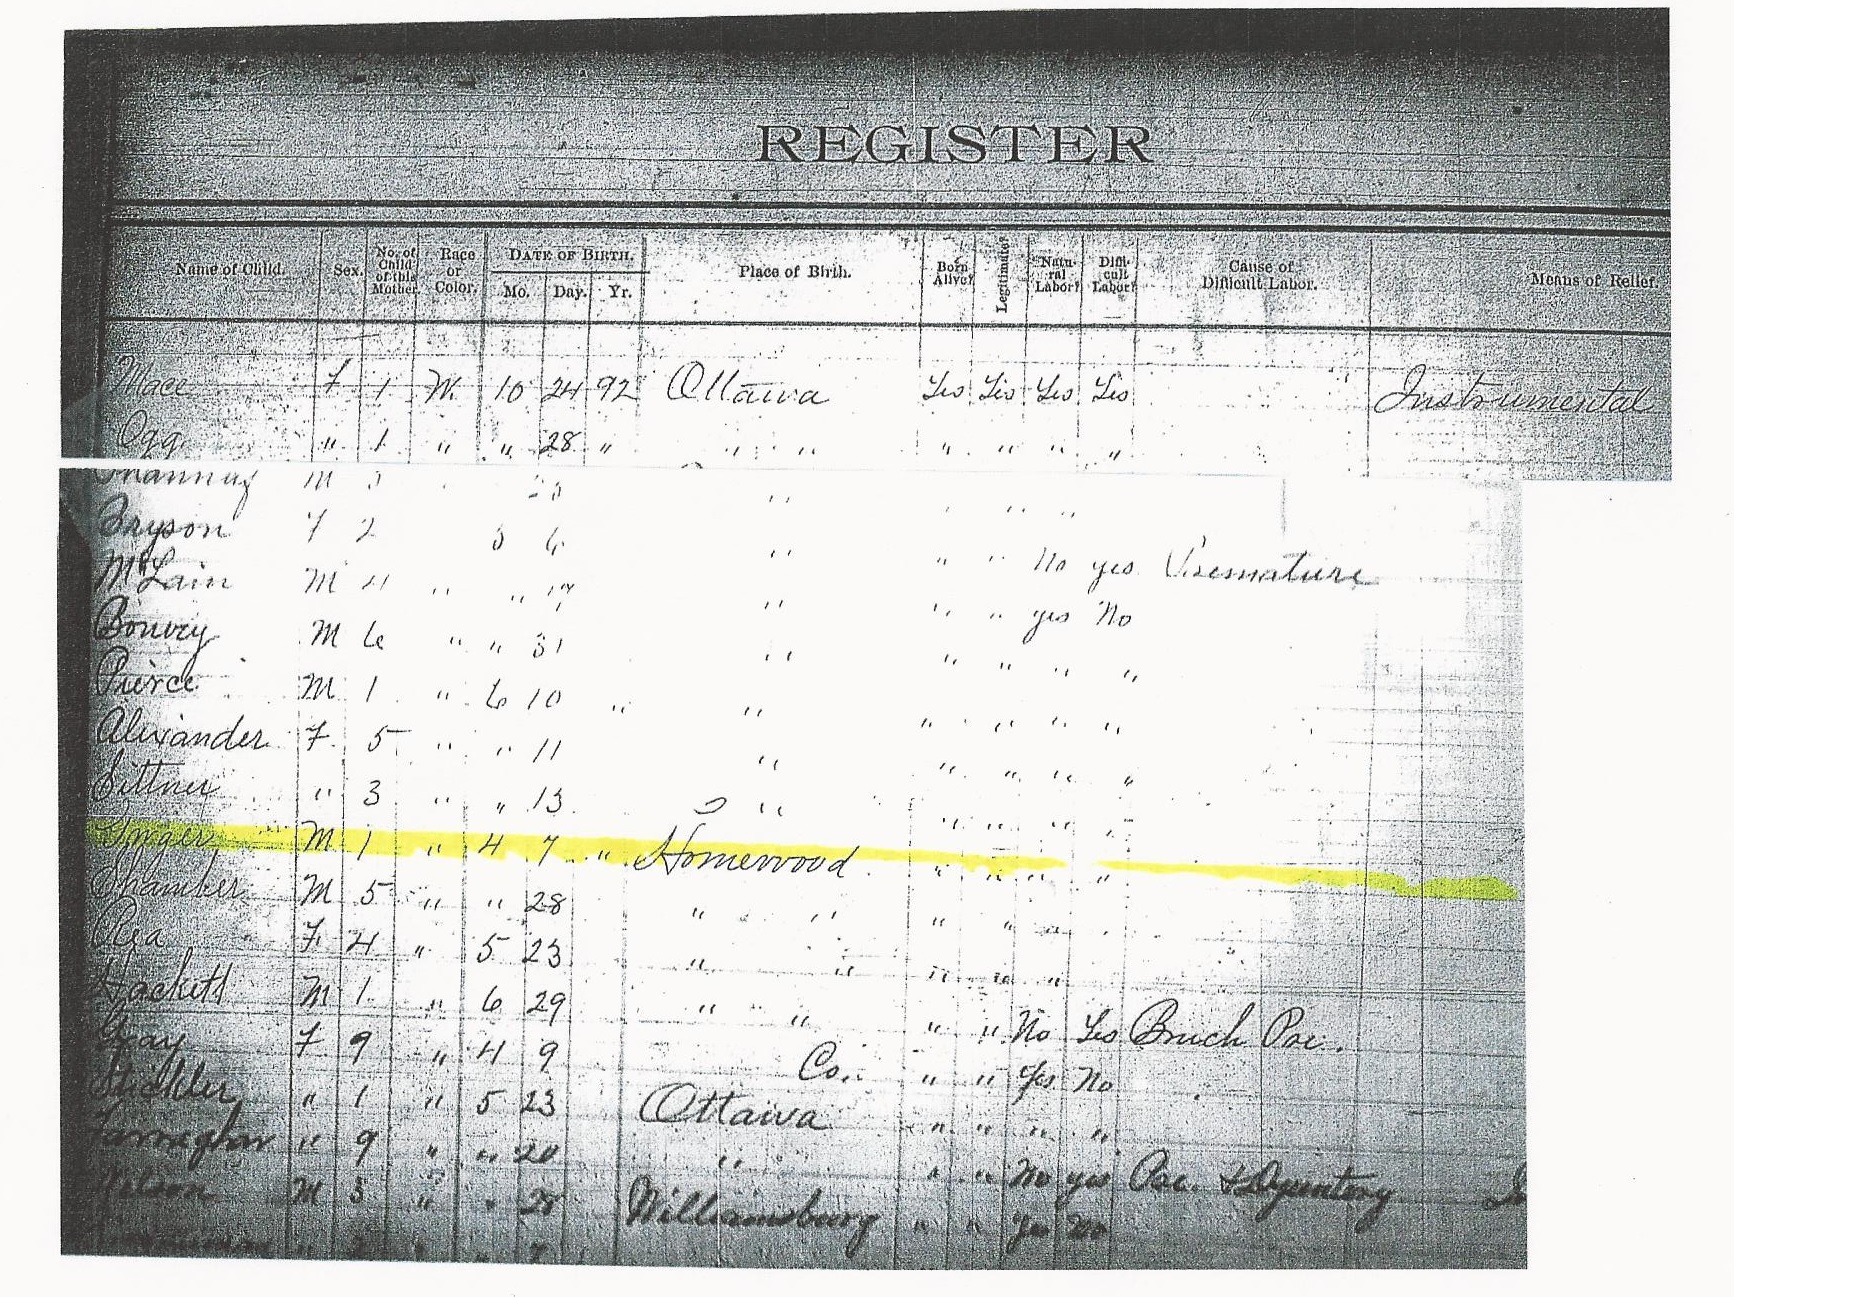 REGISTER
Name of Child. Sex. No. of Child of this Mother. Race or Color. DATE OF BIRTH. Mo. Day. Yr. Place of Birth. Born Alive? Legitimate? Natural Labor? Difficult Labor? Cause of Difficult Labor. Means of Relief.
Mace F 1 W. 10 24 92 Ottawa Yes Yes Yes Yes Instrumental
Ogg " 1 " " 28 " " " " " " " "
M
Bryson F 2 5 6 " " " No yes Premature
McLain M 4 " " 17 " " " yes No
M 6 " " 31 " " " " "
Pierce M 1 " 6 10 " " " " " "
Alexander F. 5 " " 11 " " " " "
Sittner " 3 " " 13 " " " " "
M 1 " 4 7 " Homewood " " " "
Shamber M 5 " " 28 " " " " "
Rea F 4 " 5 23 " " " " "
Hackett M 1 " 6 29 " " " " No Yes
Gray F 9 " 4 9 Co. " " Yes No
Stickler " 1 " 5 23 Ottawa " " " "
" 9 " " 20 " " " No yes
Wilson M 3 " " 28 Williamsburg " " Yes No